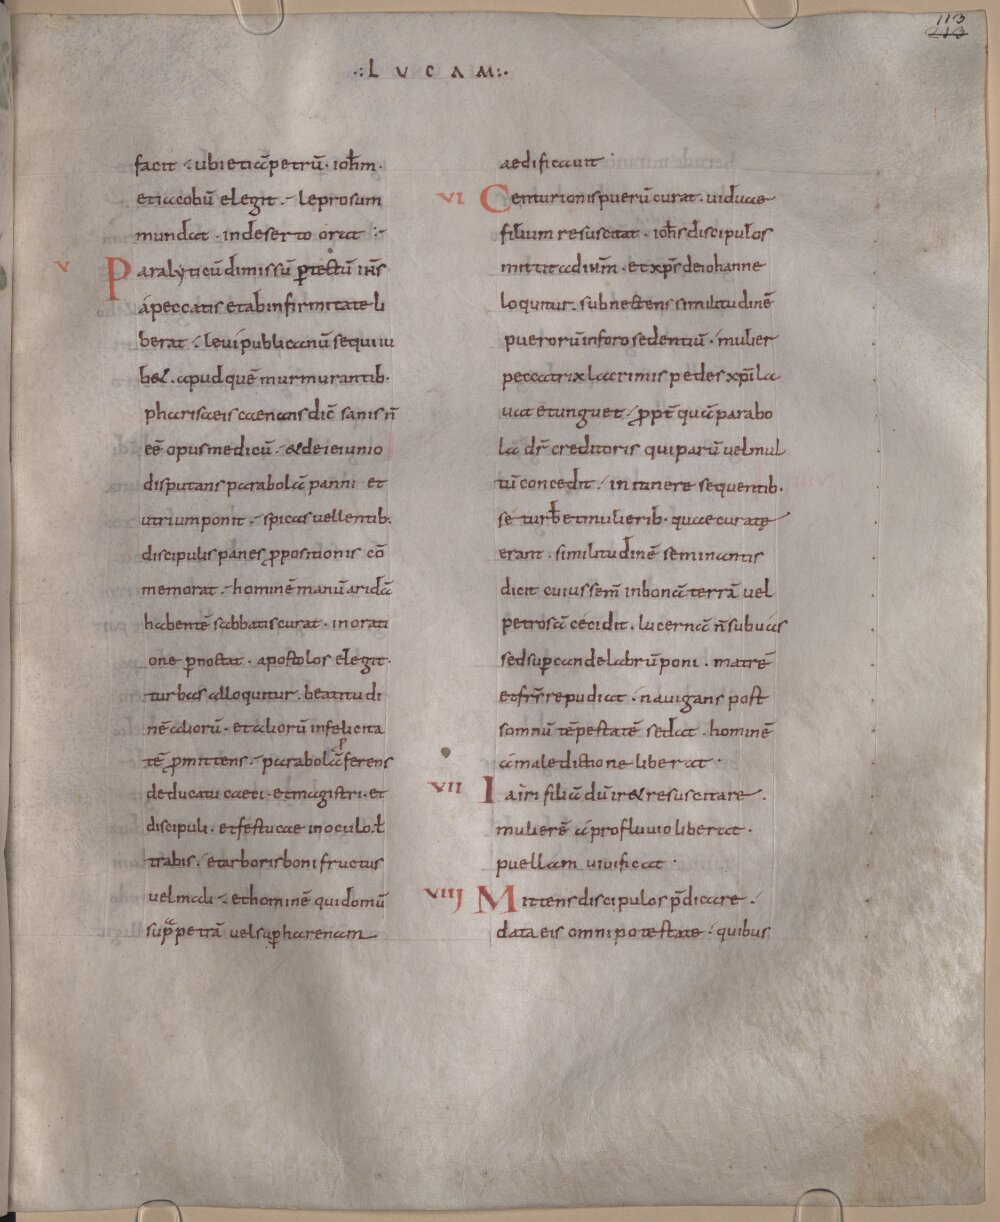 113
213
·:LVCAM:·
facit ·/ ubi et iacȏ petrū · ioh̄m ·
et iacobū elegit ·/ leprosum
mundat · in deserto orat :~
V Paralyticū dimissū ꝑ tectū ih̄s
a peccatis et ab infirmitate li
berat ·/ leui publicanū sequi iu
bet . apud quē murmurantib·
phariseis caenans dic̄ sanis n̄
eē opus medicū ·/ & de ieiunio
disputans parabolā panni et
utrium ponit ·/ spicas uellentib·
discipulis panes ꝓpositionis cō
memorat ·/ hominē manū aridā
habentē sabbatis curat · in orati
one ꝑnoctat · apostolos elegit ·
turbas alloquitur · beatitudi
nē aliorū · et aliorū infelicita
tē ꝓmittens ·/ parabolā ꝓferens
de ducatu caeci · et magistri · et
discipuli · et festucae in oculo · ł
trabis ·/ et arboris boni fructus
uel mali ·/ et hominē qui domū
supra petrā uel suꝑ harenam
aedificauit ·
VI Centurionis puerū curat · uiduae
filium resuscitat · ioh̄s discipulos
mittit ad ih̄m · et xp̄s de iohanne
loquitur · subnectens similitudinē
puerorū in foro sedentiū · mulier
peccatrix lacrimis pedes xp̄i la
uat et unguet ·/ ꝓpt̄ quā parabo
la dr̄ creditoris qui parū uel mul
tū concedit ·/ in itinere sequentib·
se turb̄ et mulierib · quae curatę
erant · similitudinē seminantis
dicit cuius sem̄ in bonā terrā uel
petrosā cecidit · lucernā n̄ sub uas
sed suꝑ candelabrū poni · matrē
et fr̄s repudiat · nauigans post
somnū tēpestatē sedat · hominē
a maledictione liberat ·
VII Iairi filiā dū ir& resuscitare ·
mulierē a profluuio liberat ·
puellam uiuificat ·
VIIJ Mittens discipulos p̄dicare ·/
data eis omni potestate ·/ quibus